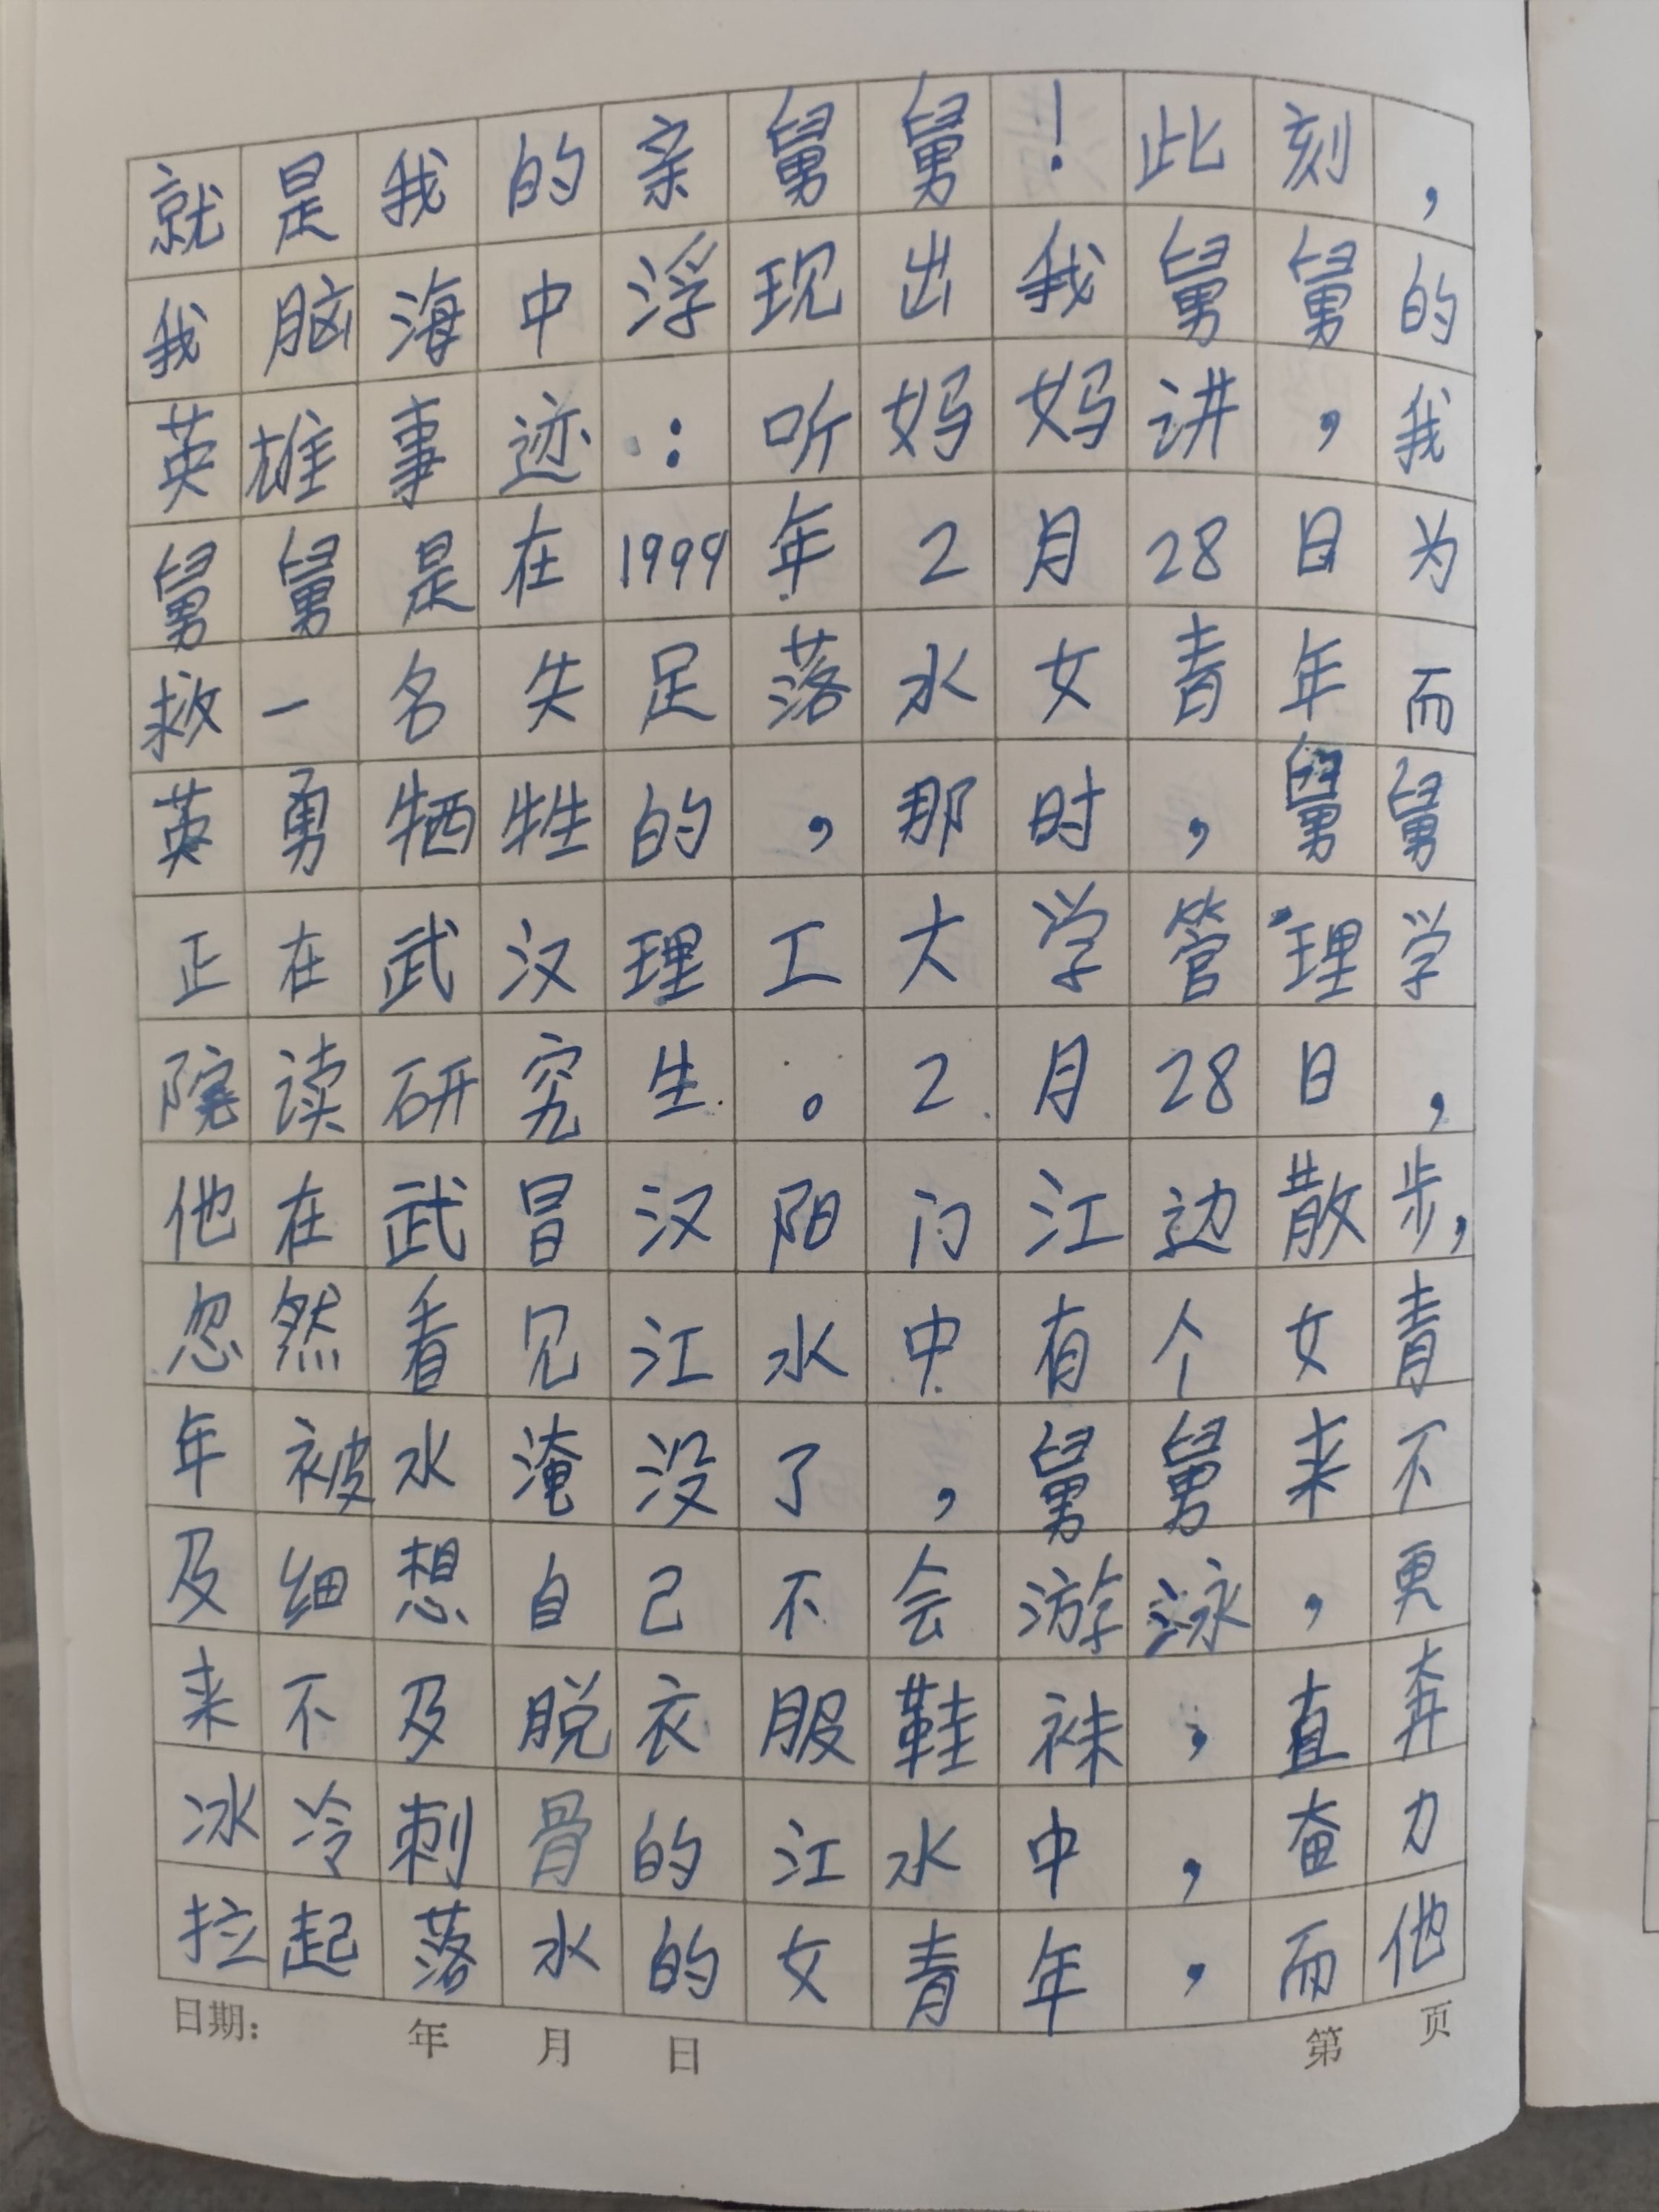 就是我的亲舅舅！此刻，
我脑海中浮现出我舅舅的
英雄事迹：听妈妈讲，我
舅舅是在1999年2月28日为
救一名失足落水女青年而
英勇牺牲的，那时，舅舅
正在武汉理工大学管理学
院读研究生。2月28日，
他在武冒汉阳门江边散步，
忽然看见江水中有个女青
年被水淹没了，舅舅来不
及细想自己不会游泳，更
来不及脱衣服鞋袜，直奔
冰冷刺骨的江水中，奋力
拉起落水的女青年，而他
日期： 年 月 日 第 页